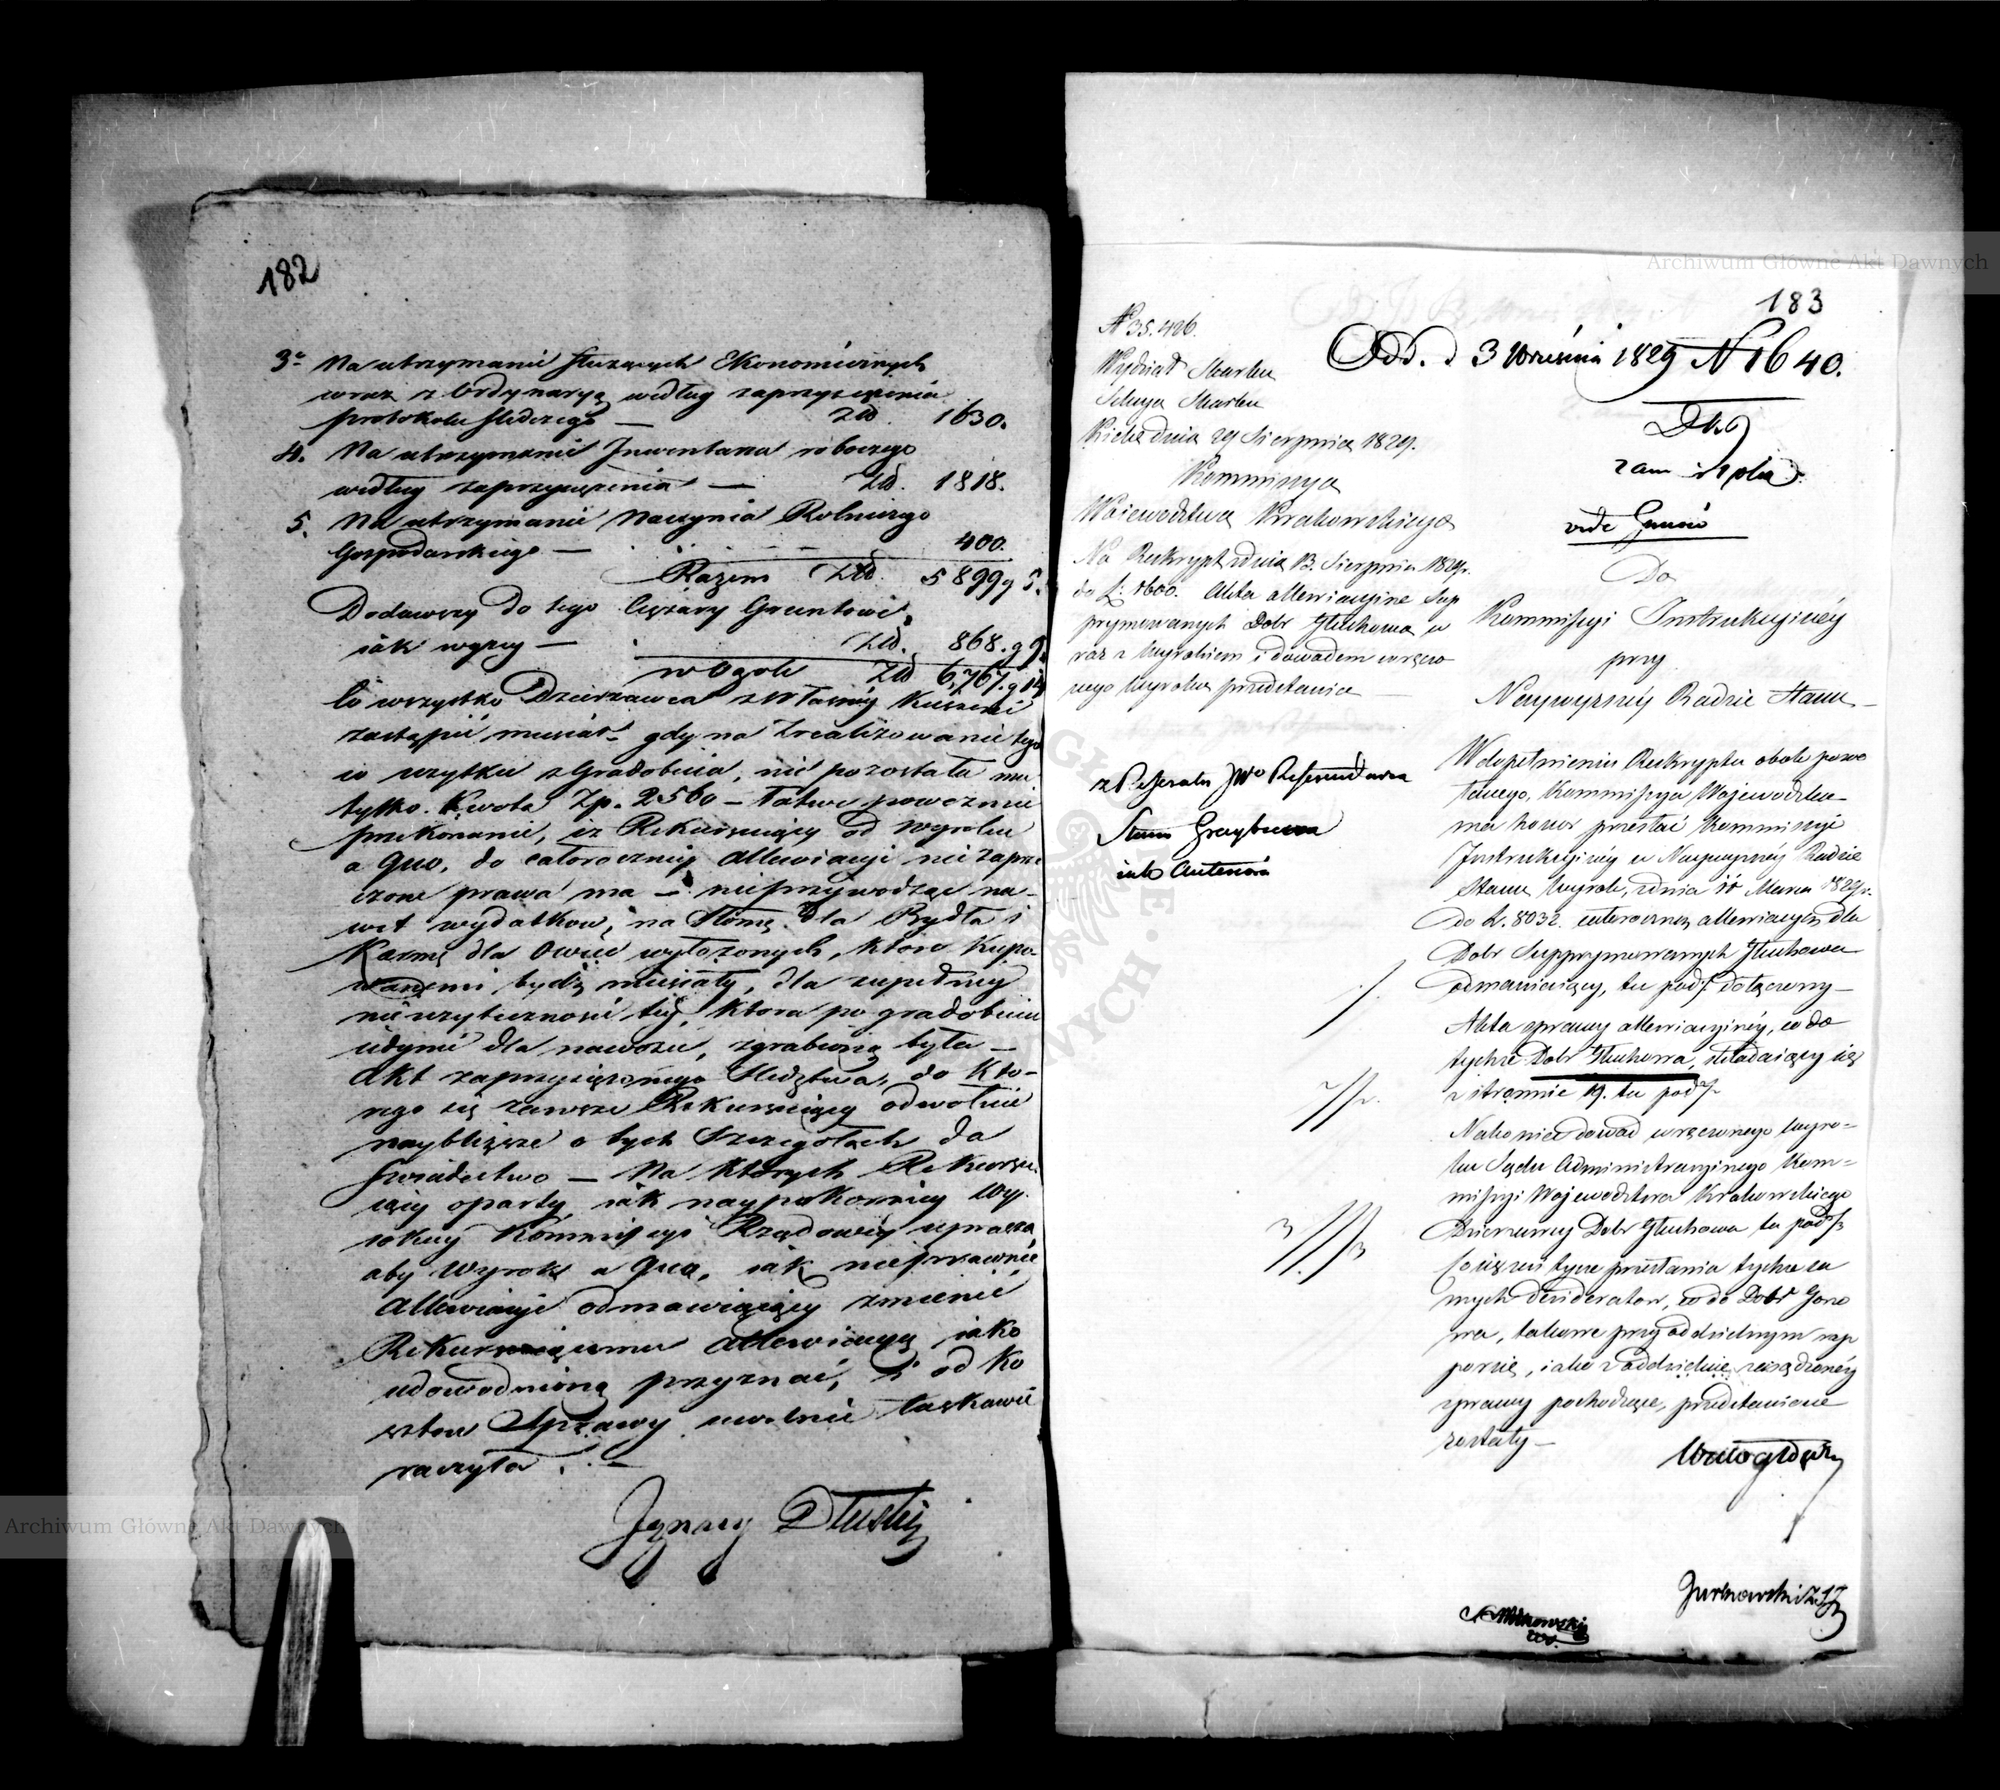 182
3° Na utrzymanie służących Ekonomicznych
wraz z Ordynaryą według zaprzysiężenia
protokołu śledczego — Złł. 1630.
4. Na utrzymanie Inwentarza roboczego
według zaprzysiężenia — Złł. 1818.
5. Na utrzymanie Naczynia Rolniczego
Gospodarskiego — 400.
Razem Złł. 5899 g 5.
Dodawszy do tego Ciężary Gruntowe,
jak wyżej — Złł. 868. g 9.
w Ogóle Złł 6,767. g 14
to wszystko Dzierżawca z własnéy Kieszeni
zastąpić musiał — gdy na zrealizowanie tego
w użytku z Gradobicia, nie pozostała mu
tylko Kwota Zp. 2560 — Łatwe poweźmie
przekonanie, iż Rekurujący od Wyroku
a quo, do całorocznéy allewiacyi niezaprze
czone prawa ma — nieprzywodząc na-
wet wydatków, na Słomę dla Bydła i
Karmę dla Owiec wyłożonych, które kupo-
wanemi bydź musiały, dla zupełney
nieużyteczności téy, która po gradobiciu
jedynie dla nawozu, zgrabioną była —
Akt zaprzysiężonego Śledztwa, do któ-
rego się zawsze Rekurujący odwołuje
naybliższe o tych Szczegółach da
świadectwo — Na których Rekuru-
iący oparty jak naypokorniey Wy-
sokiey Kommissyi Rządowéy uprasza,
aby Wyrok a quo, jak nieprawnie
Allewiacyi odmawiający zmienić
Rekurującemu allewiacyą jako
udowodnioną przyznać, i od Ko
sztów Sprawy uwolnić łaskawie
raczyła. —
Ignacy Dłuski
183
N 35.426.
Wydział Skarbu
Sekcya Skarbu
Kielce dnia 29 Sierpnia 1829.
Kommissya
Województwa Krakowskiego
Na Reskrypt z dnia 13. Sierpnia 1829r.
do L: 1600. Akta allewiacyine Sup
prymowanych Dobr Głuchowa w
raz z Wyrokiem i dowodem wręczo
nego Wyroku przedstawia —
z Referatu JWo Referendarza
Stanu Grzybowa
jako Autenora
Odd. d 3 Września 1829 N 1640.
Do
Kommissyi Instrukcyinéy
przy
Naywyższéy Radzie Stanu —
W dopełnieniu Reskryptu obok powo
łanego, Kommissya Województwa
ma honor przesłać Kommissyi
Instrukcyinéy w Naywyższéy Radzie
Stanu Wyrok, z dnia 11 Marca 1829r.
do L. 8032. całoroczney allewiacyi dla
Dobr Supprymowanych Głuchowa
odmawiaiący, tu pod /1. dołączony —
Akta sprawy allewiacyinéy, co do
tychże Dobr Głuchowa, składaiący się
z stronnic 19. tu pod /2
Nakoniec dowód wręczonego Wyro-
ku Sądu Administracyinego Kom-
missyi Województwa Krakowskiego
Dzierżawcy Dobr Głuchowa tu pod /3
Co się zaś tycze przesłania tychże sa
mych desideratów, co do Dobr Gono
wa, takowe przy oddzielnym rap
porcie, jako z oddzielnie rozsądzonéy
sprawy pochodzące, przedstawione
zostały —
Wielogłowski
Archiwum Główne Akt Dawnych
Archiwum Główne Akt Dawnych